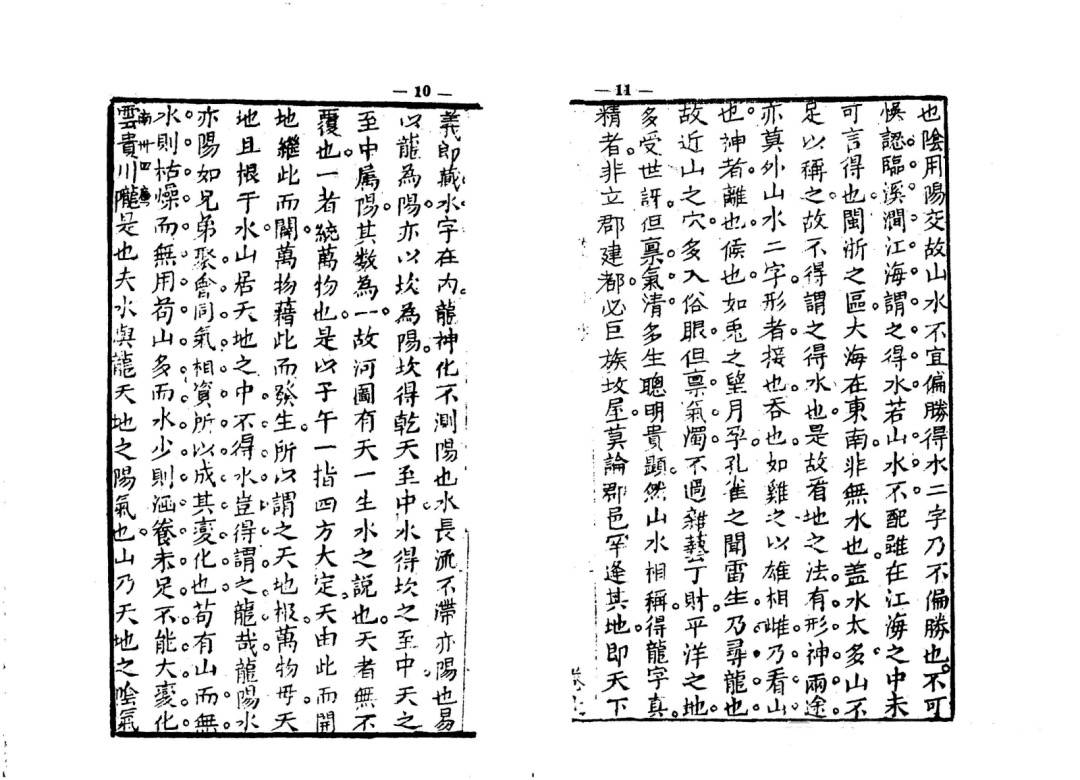 — 10 —
義即藏水字在内。龍神化不測陽也。水長流不滯亦陽也。易
以龍為陽。亦以坎為陽。坎得乾天至中。水得坎之至中。天之
至中屬陽。其數為一。故河圖有天一生水之説也。天者無不
覆也。一者統萬物也。是以子午一指四方大定。天由此而開。
地繼此而闢。萬物藉此而發生。所以謂之天地根。萬物母。天
地且根于水。山居天地之中。不得水。豈得謂之龍哉。龍陽水
亦陽。如兄弟聚會。同氣相資。所以成其變化也。苟有山而無
水。則枯燥而無用。苟山多而水少。則涵養未足。不能大變化。
雲貴川隴是也。夫水與龍天地之陽氣也。山乃天地之陰氣
— 11 —
也。陰用陽交。故山水不宜偏勝。得水二字。乃不偏勝也。不可
悞認臨溪澗江海。謂之得水。若山水不配。雖在江海之中。未
可言得也。閩浙之區。大海在東南。非無水也。蓋水太多。山不
足以稱之。故不得謂之得水也。是故看地之法。有形神兩途。
亦莫外山水二字。形者接也。吞也。如雞之以雄相雌。乃看山
也。神者離也。候也。如兎之望月孕。孔雀之聞雷生。乃尋龍也。
故近山之穴。多入俗眼。但禀氣濁。不過雜藝丁財。平洋之地。
多受世訝。但禀氣清。多生聰明貴顯。然山水相稱。得龍字真
精者。非立郡建都。必巨族坟屋。莫論郡邑罕逢其地。即天下